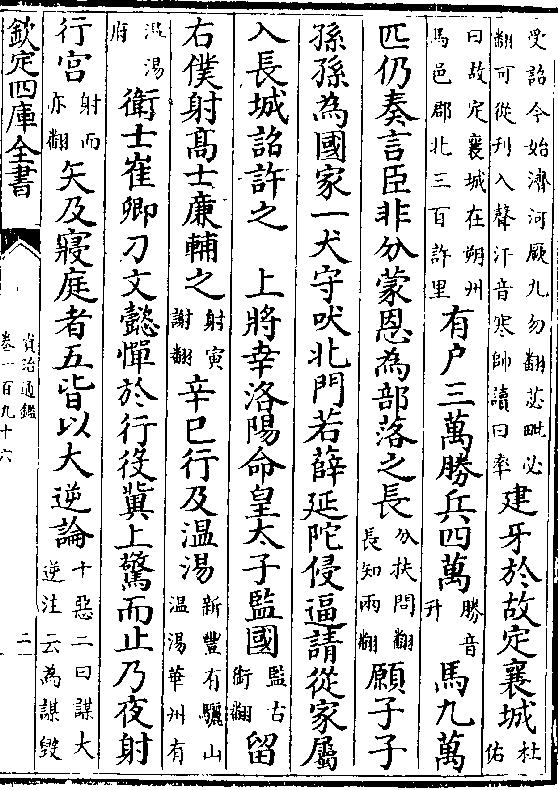 受詔今始濟河厥九勿翻苾毗必
翻可從刋入聲汗音寒帥讀曰率
建牙於故定襄城
杜佑
曰故定襄城在朔州
馬邑郡北三百許里
有户三萬勝兵四萬
勝音
升
馬九萬
匹仍奏言臣非分蒙恩為部落之長
分扶問翻
長知兩翻
願子子
孫孫為國家一犬守吠北門若薛延陀侵逼請從家屬
入長城詔許之 上將幸洛陽命皇太子監國
監古
銜翻
留
右僕射高士廉輔之
射寅
謝翻
辛巳行及温湯
新豐有驪山
温湯華州有
温湯
府
衛士崔卿刀文懿憚於行役冀上驚而止乃夜射
行宫
射而
亦翻
矢及寢庭者五皆以大逆論
十惡二曰謀大
逆注云為謀毀
欽定四庫全書
資治通鑑
卷一百九十六
二